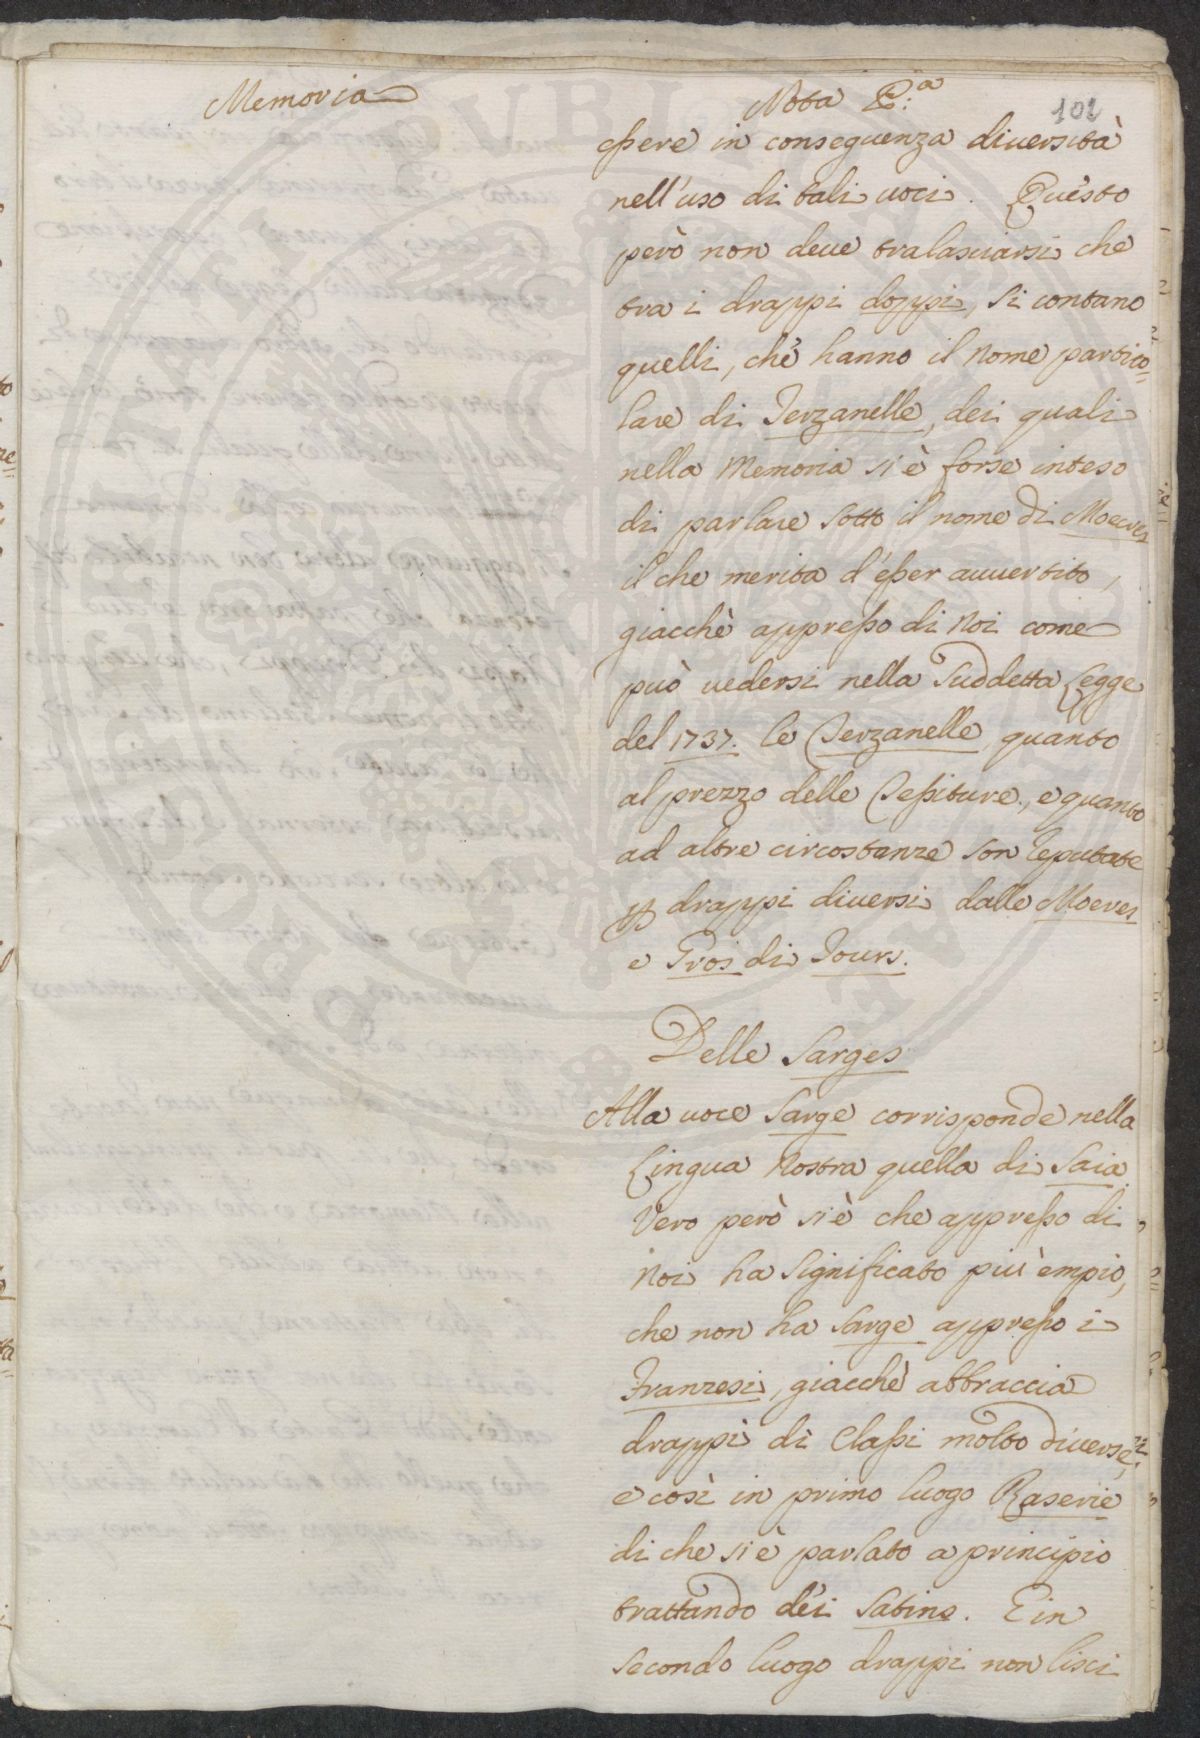 Memoria
Nota P.a
102
essere in conseguenza diversità
nell'uso di tali voci. Questo
però non deve tralasciarsi che
tra i drappi doppi, si contano
quelli, che hanno il nome partico=
lare di Terzanelle, dei quali
nella Memoria si è forse inteso
di parlare sotto il nome di Moeves
il che merita d'esser avvertito,
giacchè appresso di Noi come
può vedersi nella suddetta Legge
del 1737. le Terzanelle, quanto
al prezzo delle Tessiture, e quanto
ad altre circostanze son reputate
drappi diversi dalle Moeves
e Gros di Tours.
Delle Sarges
Alla voce Sarge corrisponde nella
Lingua Nostra quella di Saia.
Vero però si è che appresso di
Noi ha significato più empio,
che non ha Sarge appresso i
Franzesi, giacchè abbraccia
drappi di Classi molto diverse,
e così in primo luogo Raserie
di che si è parlato a principio
trattando dei Satins. E in
secondo luogo drappi non lisci